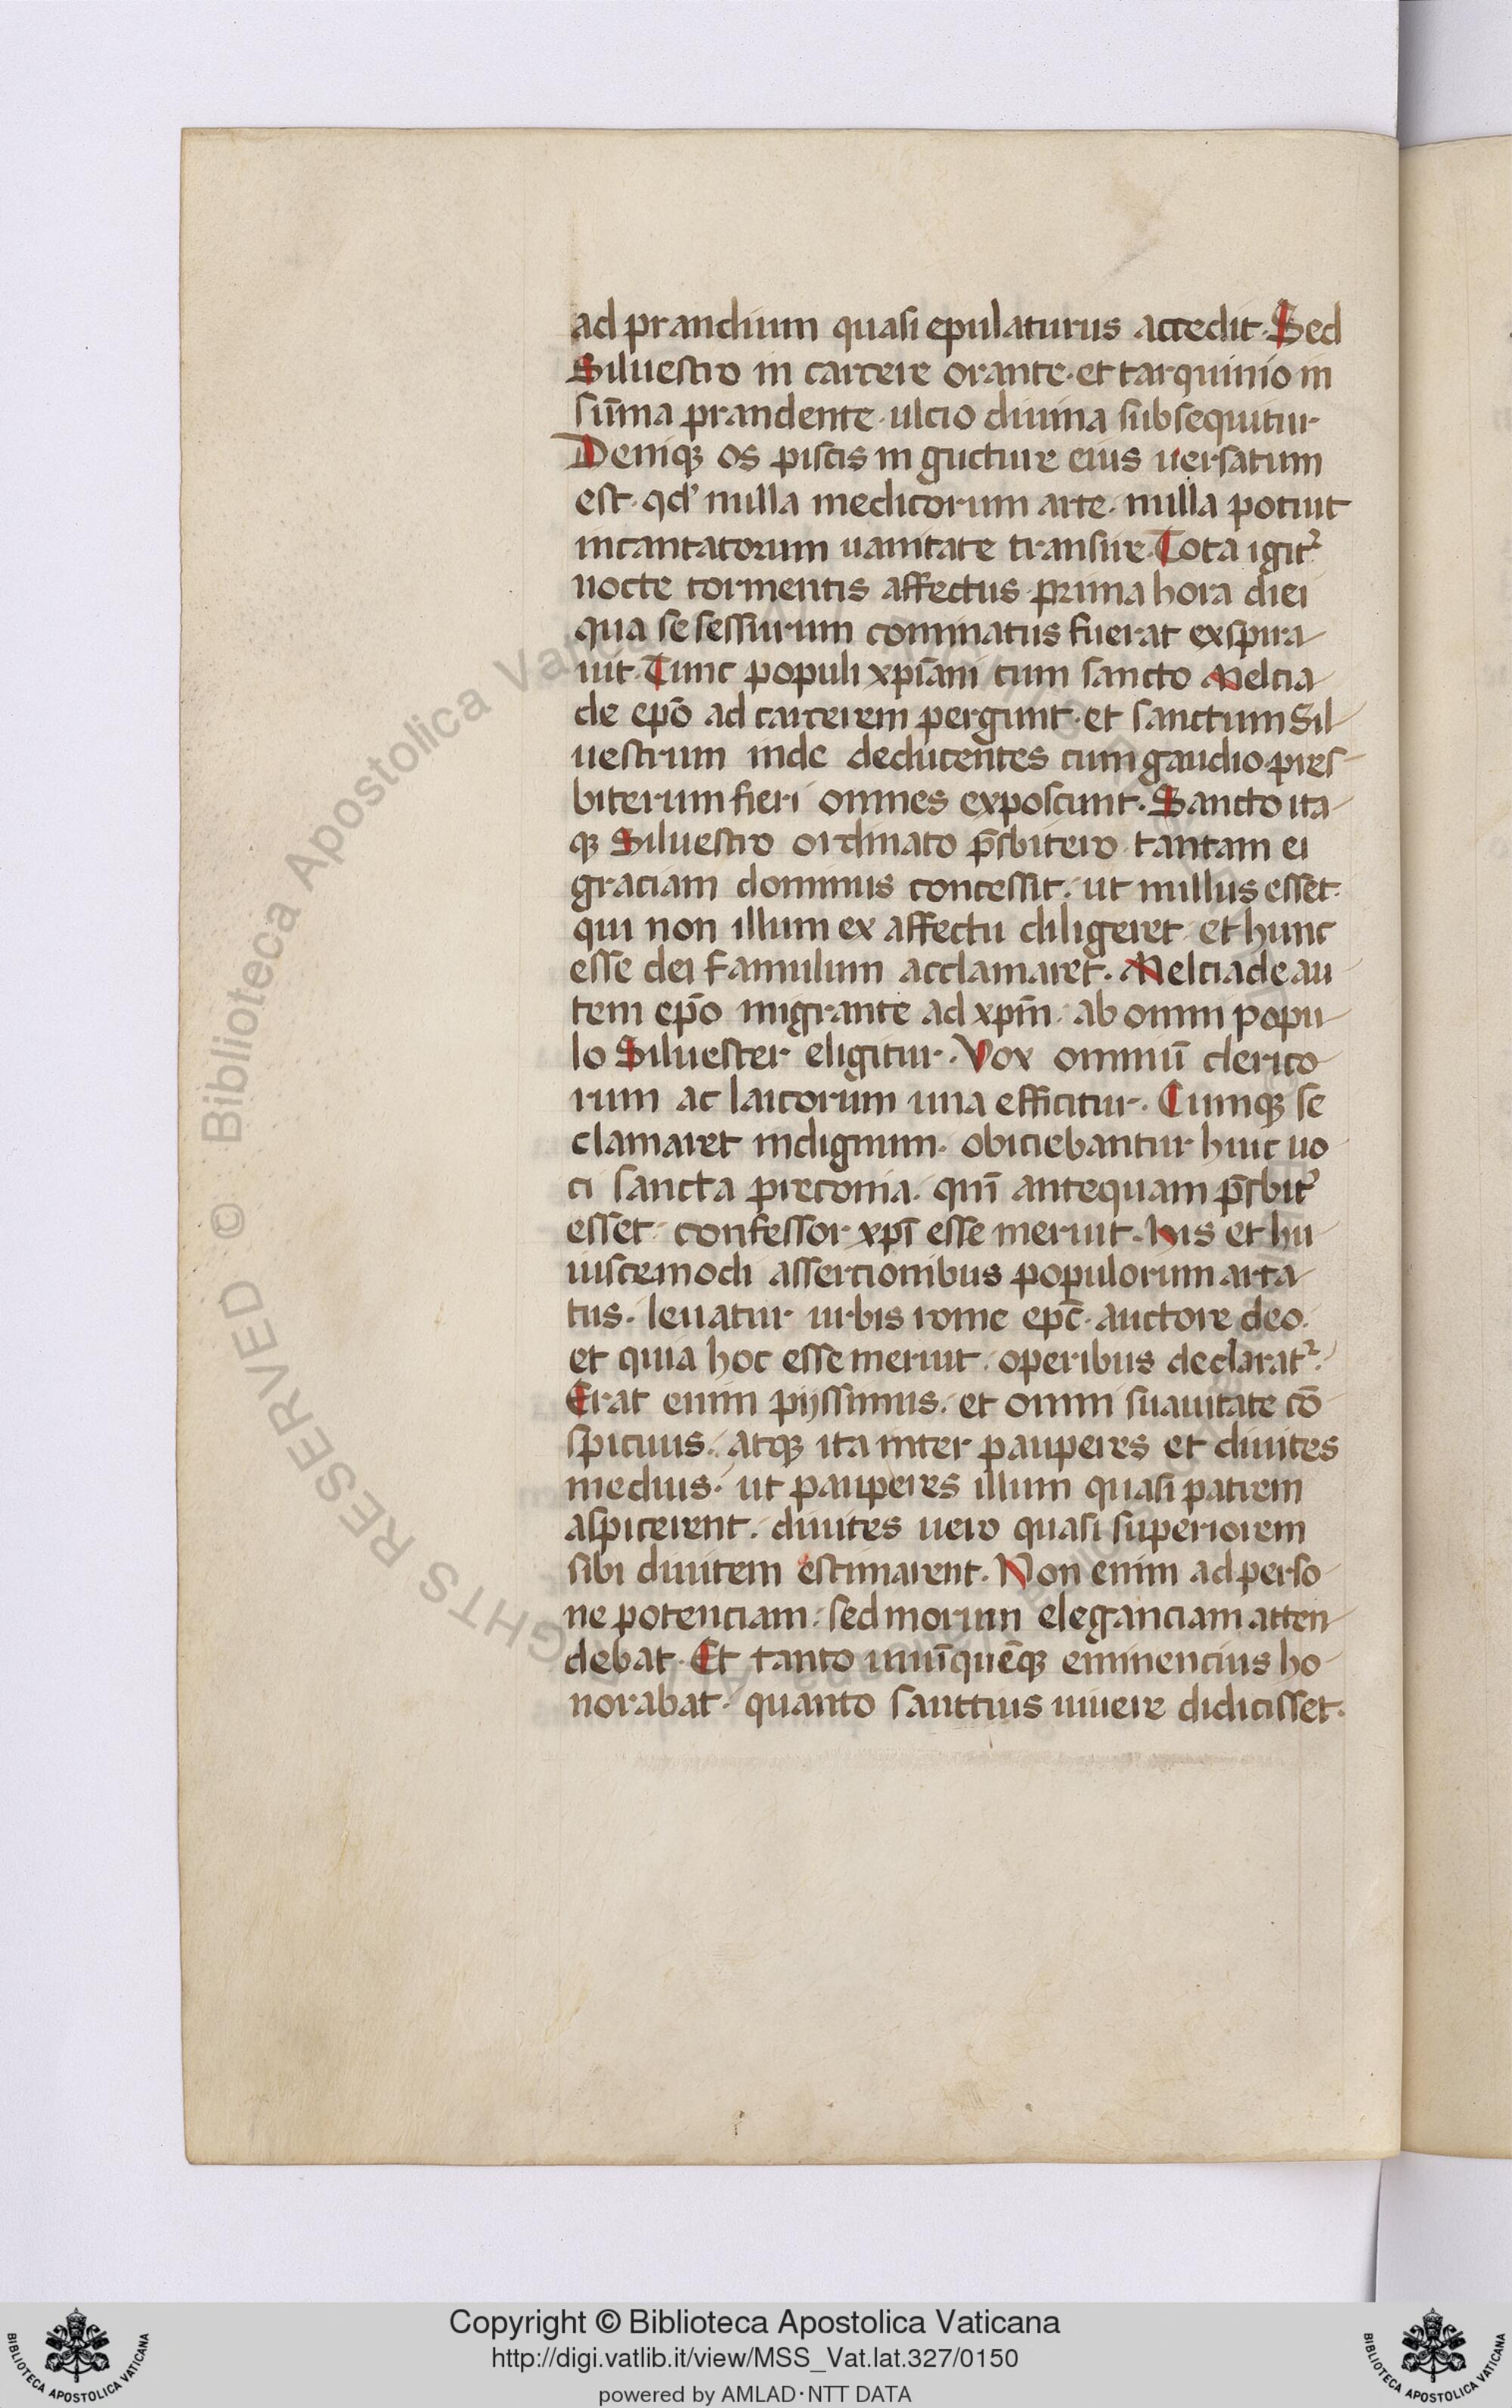 ad prandium quasi epulaturus accedit. Sed
Siluestro in carcere orante. et tarquinio in
sum̄a prandente. ulcio diuina subsequitur
Deniqꝫ os piscis in gucture eius uersatum
est. qd' nulla medicorum arte. nulla potuit
incantatorum uanitate transire. Tota igit᷑
nocte tormentis affectus. prima hora diei
qua se sessurum cominatus fuerat exspira
uit. Tunc populi xp̄iani cum sancto Melcia
de ep̄o ad carcerem pergunt. et sanctum Sil
uestrum inde deducentes cum gaudio. pres
biterum fieri omnes exposcunt. Sancto ita
qꝫ Siluestro ordinato p̄sbitero. tantam ei
graciam dominus concessit. ut nullus esset.
qui non illum ex affectu diligeret. et hunc
esse dei famulum acclamaret. Melciade au
tem ep̄o migrante ad xp̄m. ab omni popu
lo Siluester eligitur. Vox omniū clerico
rum ac laicorum una efficitur. Cumqꝫ se
clamaret indignum. obiciebantur huic uo
ci sancta preconia. qm̄ antequam p̄sbit᷑
esset. confessor xp̄i esse meruit. His et hu
iuscemodi assercionibus populorum arta
tus. leuatur urbis rome ep̄c. auctore deo.
et quia hoc esse meruit. operibus declarat᷑.
Erat enim pijssimus. et omni suauitate cō
spicuus. atqꝫ ita inter pauperes et diuites
medius. ut pauperes illum quasi patrem
aspicerent. diuites uero quasi superiorem
sibi diuitem estimarent. Non enim ad perso
ne potenciam. sed morum eleganciam atten
debat. Et tanto unūquēqꝫ eminencius ho
norabat. quanto sanctius uiuere didicisset.
© Biblioteca Apostolica Vaticana
RIGHTS RESERVED
Copyright © Biblioteca Apostolica Vaticana
http://digi.vatlib.it/view/MSS_Vat.lat.327/0150
powered by AMLAD·NTT DATA
BIBLIOTECA APOSTOLICA VATICANA
BIBLIOTECA APOSTOLICA VATICANA